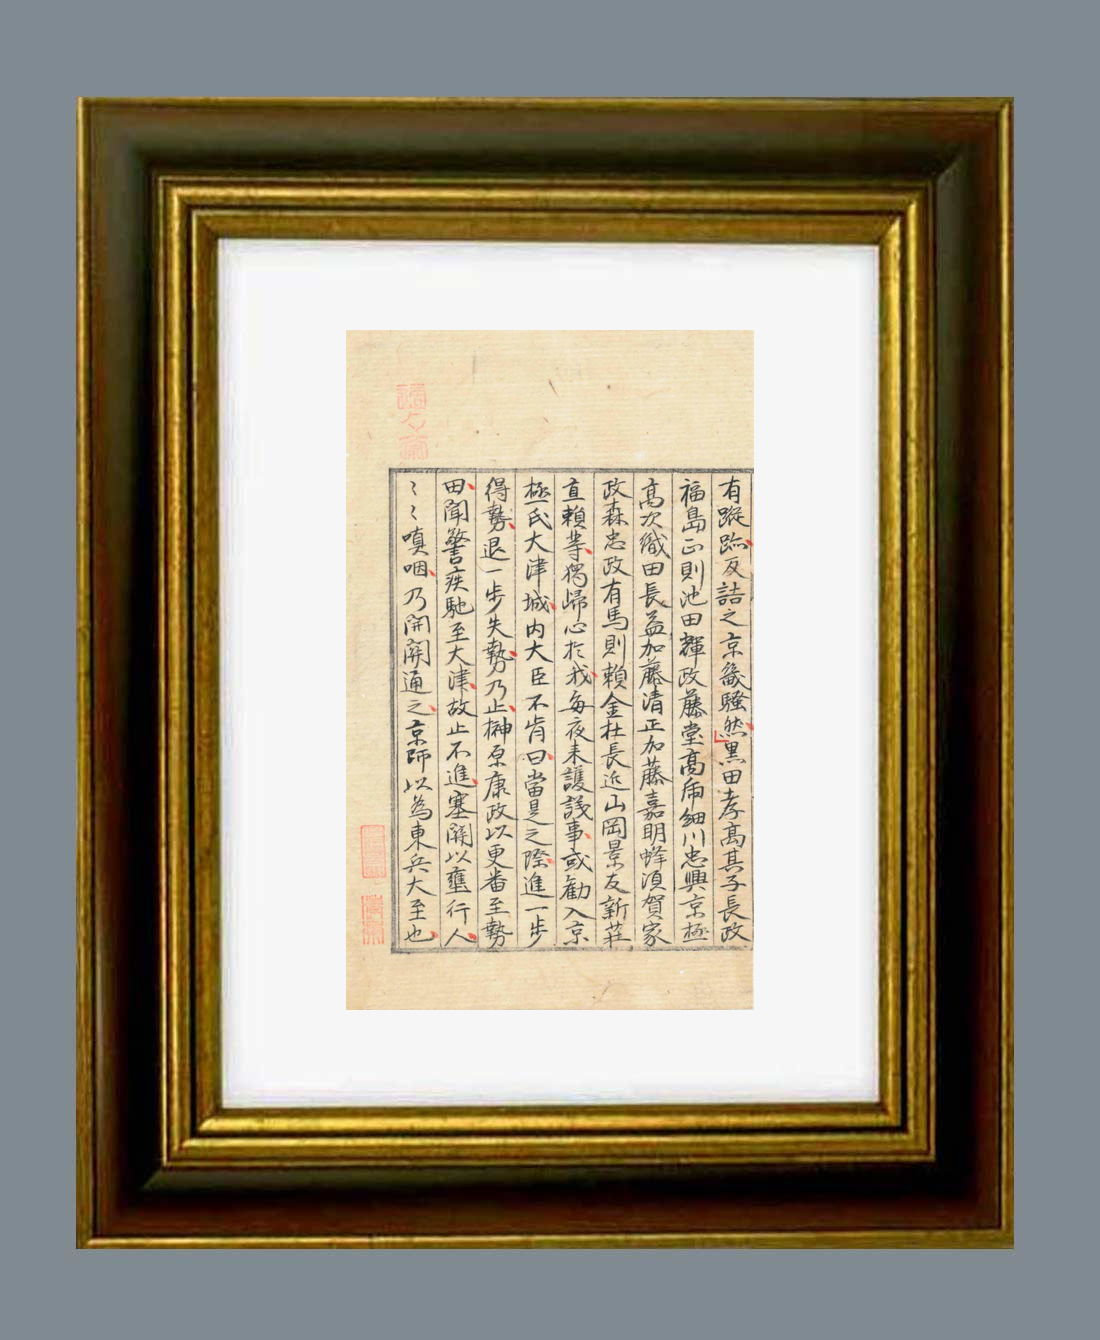 有蹤跡反詰之京畿騷然黒田孝高其子長政
福島正則池田輝政藤堂高虎細川忠興京極
高次織田長益加藤清正加藤嘉明蜂須賀家
政森忠政有馬則賴金杜長近山岡景友新莊
直賴等獨歸心於我每夜来護議事或勸入京
極氏大津城内大臣不肯曰當是之際進一步
得勢退一步失勢乃止榊原康政以更番至勢
田聞警疾馳至大津故止不進塞關以壅行人
〻〻嗔咽乃開關通之京師以為東兵大至也